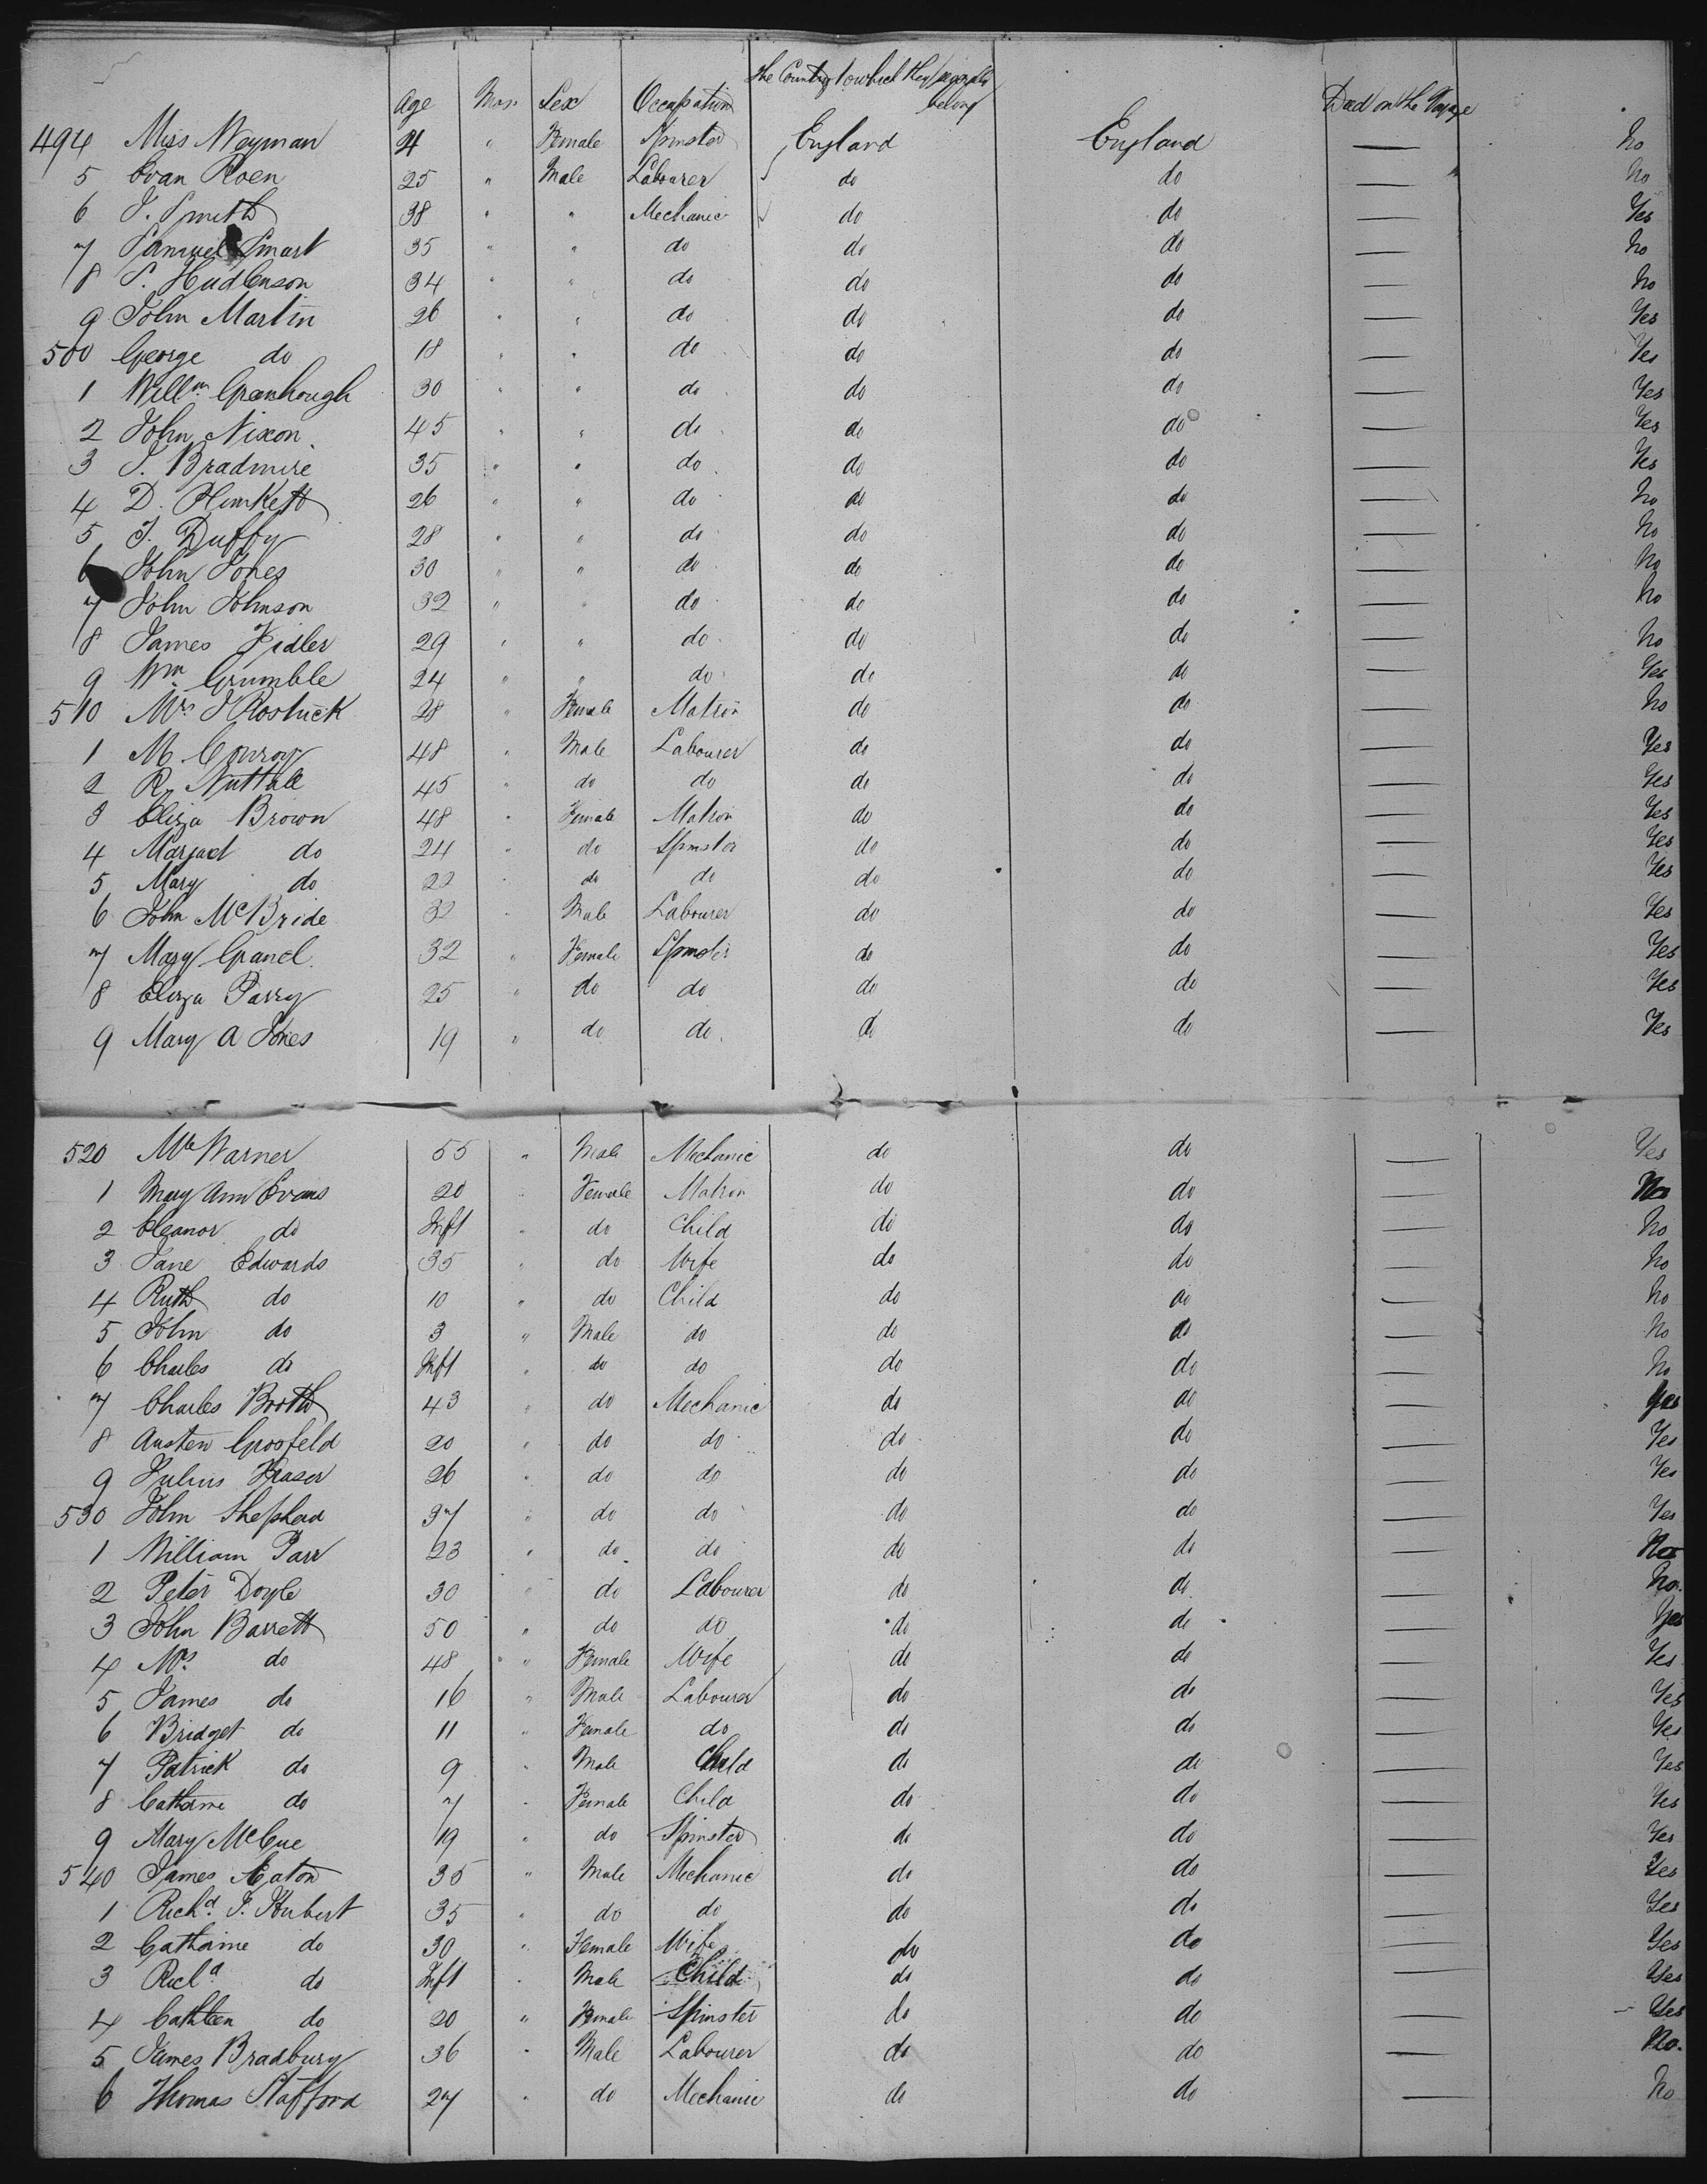 The Country to which they severally
Age Mos Sex Occupation belong Died on the Voyage
494 Miss Weyman 21 " Female Spinster England England — No
5 Evan Roen 25 " Male Labourer do do — No
6 J. Smith 38 " " Mechanic do do — Yes
7 Samuel Smart 35 " " do do do — No
8 S. Hudlenson 34 " " do do do — No
9 John Martin 26 " " do do do — Yes
500 George do 18 " " do do do — Yes
1 Willm Greenhough 30 " " do do do — Yes
2 John Nixon 45 " " do do do — Yes
3 J. Bradmire 35 " " do do do — Yes
4 D. Plunkett 26 " " do do do — No
5 J. Duffy 28 " " do do do — No
6 John Jones 30 " " do do do — No
7 John Johnson 32 " " do do do — No
8 James Fidler 29 " " do do do — No
9 Wm Grumble 24 " " do do do — Yes
510 Mrs J Rostrick 28 " Female Matron do do — No
1 M. Conroy 48 " Male Labourer do do — Yes
2 R. Nuttall 45 " do do do do — Yes
3 Eliza Brown 48 " Female Matron do do — Yes
4 Margact do 24 " do Spinster do do — Yes
5 Mary do 22 " do do do do — Yes
6 John McBride 32 " Male Labourer do do — Yes
7 Mary Grand 32 " Female Spinster do do — Yes
8 Eliza Parry 25 " do do do do — Yes
9 Mary A Jones 19 " do do do do — Yes
520 Mr Warner 55 " Male Mechanic do do — Yes
1 Mary Ann Evans 20 " Female Matron do do — No
2 Eleanor do Inft " do Child do do — No
3 Jane Edwards 35 " do Wife do do — No
4 Ruth do 10 " do Child do do — No
5 John do 3 " Male do do do — No
6 Charles do Inft " do do do do — No
7 Charles Booth 43 " do Mechanic do do — Yes
8 Austen Grosfeld 20 " do do do do — Yes
9 Julius Fraser 26 " do do do do — Yes
530 John Shepherd 37 " do do do do — Yes
1 William Parr 23 " do do do do — No
2 Peter Doyle 30 " do Labourer do do — No.
3 John Barrett 50 " do do do do — Yes
4 Mrs do 48 " Female Wife do do — Yes
5 James do 16 " Male Labourer do do — Yes
6 Bridget do 11 " Female do do do — Yes
7 Patrick do 9 " Male Child do do — Yes
8 Catherine do 7 " Female Child do do — Yes
9 Mary McCue 19 " do Spinster do do — Yes
540 James Eaton 35 " Male Mechanic do do — Yes
1 Richd J. Hubert 35 " do do do do — Yes
2 Catherine do 30 " Female Wife do do — Yes
3 Richd do Inft " Male Child do do — Yes
4 Cathleen do 20 " Female Spinster do do — Yes
5 James Bradbury 36 " Male Labourer do do — No.
6 Thomas Stafford 27 " do Mechanic do do — No